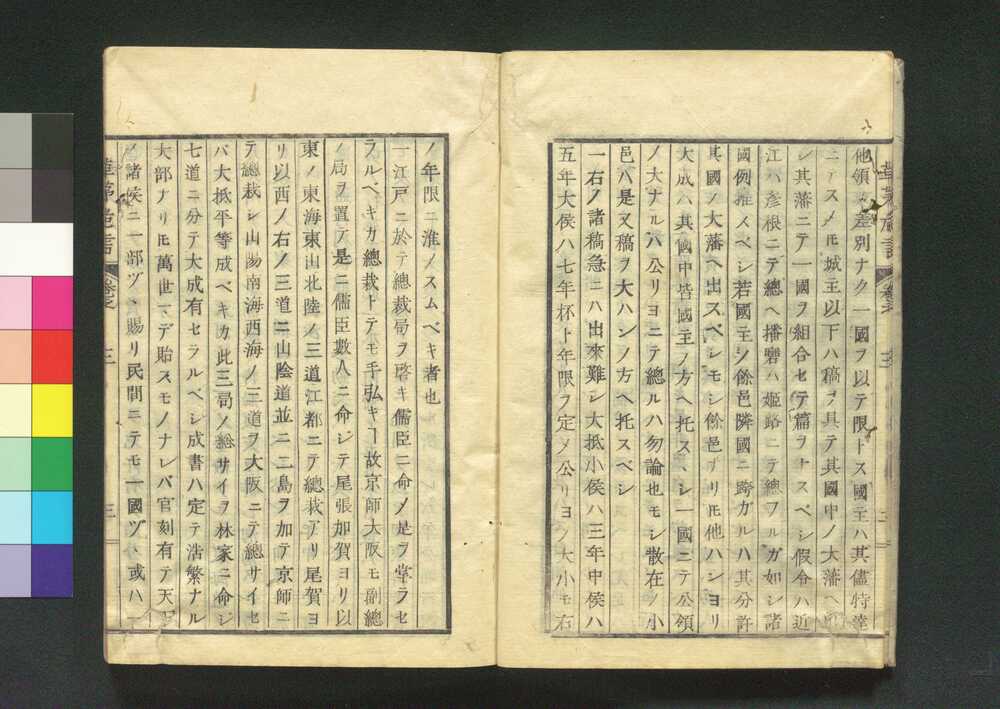 他領ノ差別ナク一國ヲ以テ限トス國主ハ其儘特達
ニテスメ𪜈城主以下ハ稿ヲ具テ其國中ノ大藩ヘ
シ其藩ニテ一國ヲ組合セテ篇ヲナスベシ假令ハ近
江ハ彦根ニテ總ヘ播磨ハ姫路ニテ總フルガ如シ諸
國例推スベシ若國主ノ餘邑隣國ニ跨ガルハ其分許
其國ノ大藩ヘ出スベシモシ餘邑ナリ𪜈他ハンヨリ
大成ハ其國中皆國主ノ方ヘ托スヘシ一國ニテ公領
ノ大ナルハ公リヨニテ總ルハ勿論也モシ散在ノ小
邑ハ是又稿ヲ大ハンノ方ヘ托スベシ
一右ノ諸稿急ニハ出來難シ大抵小侯ハ三年中侯ハ
五年大侯ハ七年杯ト年限ヲ定メ公リヨフ大小モ右
ノ年限ニ准メスムベキ者也
一江戸ニ於テ總裁局ヲ啓キ儒臣ニ命メ是ヲ掌ラセ
ラルベキカ總裁トテモ手弘キヿ故京師大阪モ副總
ノ局ヲ置テ是ニ儒臣數人ニ命ジテ尾張加賀ヨリ以
東ノ東海東山北陸ノ三道江都ニテ總裁アリ尾賀ヨ
リ以西ノ右ノ三道ニ山陰道並ニ二島ヲ加テ京師ニ
テ總裁シ山陽南海西海ノ三道ヲ大阪ニテ總サイセ
バ大抵平等成ベキカ此三局ノ総サイヲ林家ニ命ジ
七道ニ分テ大成有セラルベシ成書ハ定テ浩繁ナル
大部ナリ𪜈萬世マデ貽スモノナレバ官刻有テ天下
ノ諸侯ニ一部ヅヽ賜リ民間ニテモ一國ヅヽ或ハ一
三